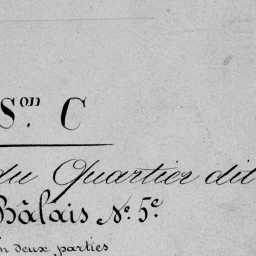 Son. C
du Quartier dit
Bâlais No. 5e.
en deux parties